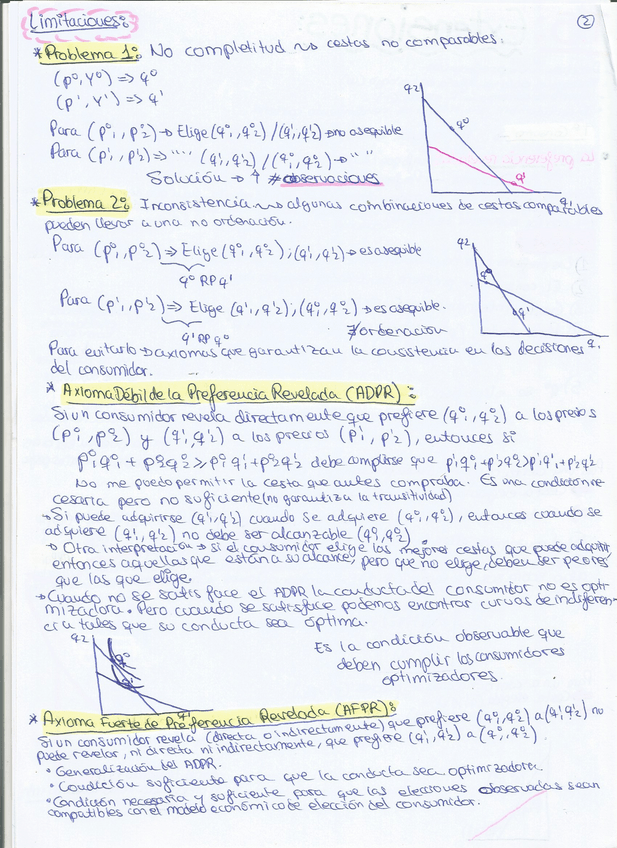 Limitaciones:
2
* Problema 1: No completitud ~> cestas no comparables:
(p⁰, Y⁰) => q⁰
(p', Y') => q'
Para (p⁰₁, p⁰₂) → Elige (q⁰₁, q⁰₂) / (q'₁, q'₂) → no asequible
Para (p'₁, p'₂) => "" "" (q'₁, q'₂) / (q⁰₁, q⁰₂) → " "
Solución → ↑ # observaciones
q2
q⁰
q'
q₁
* Problema 2: Inconsistencia ~> algunas combinaciones de cestas comparables
pueden llevar a una no ordenación.
Para (p⁰₁, p⁰₂) => Elige (q⁰₁, q⁰₂); (q'₁, q'₂) → es asequible
q⁰ RP q'
Para (p'₁, p'₂) => Elige (q'₁, q'₂); (q⁰₁, q⁰₂) → es asequible.
q' RP q⁰
∄ ordenación
q2
q⁰
q'
q₁
Para evitarlo → axiomas que garantizan la consistencia en las decisiones
del consumidor.
* Axioma Débil de la Preferencia Revelada (ADPR):
Si un consumidor revela directamente que prefiere (q⁰₁, q⁰₂) a los precios
(p⁰₁, p⁰₂) y (q'₁, q'₂) a los precios (p'₁, p'₂), entonces si
p⁰₁q⁰₁ + p⁰₂q⁰₂ ≥ p⁰₁q'₁ + p⁰₂q'₂ debe cumplirse que p'₁q⁰₁ + p'₂q⁰₂ > p'₁q'₁ + p'₂q'₂
No me puedo permitir la cesta que antes compraba. Es una condición ne-
cesaria pero no suficiente (no garantiza la transitividad)
→ Si puede adquirirse (q'₁, q'₂) cuando se adquiere (q⁰₁, q⁰₂), entonces cuando se
adquiere (q'₁, q'₂) no debe ser alcanzable (q⁰₁, q⁰₂)
→ Otra interpretación → si el consumidor elige las mejores cestas que puede adquirir,
entonces aquellas que están a su alcance, pero que no elige, deben ser peores
que las que elige.
→ Cuando no se satisface el ADPR la conducta del consumidor no es opti-
mizadora. Pero cuando se satisface podemos encontrar curvas de indiferen-
cia tales que su conducta sea óptima.
q2
q⁰
q'
q₁
Es la condición observable que
deben cumplir los consumidores
optimizadores.
* Axioma Fuerte de Preferencia Revelada (AFPR):
Si un consumidor revela (directa o indirectamente) que prefiere (q⁰₁, q⁰₂) a (q'₁, q'₂) no
puede revelar, ni directa ni indirectamente, que prefiere (q'₁, q'₂) a (q⁰₁, q⁰₂).
• Generalización del ADPR.
• Condición suficiente para que la conducta sea optimizadora.
• Condición necesaria y suficiente para que las elecciones observadas sean
compatibles con el modelo económico de elección del consumidor.